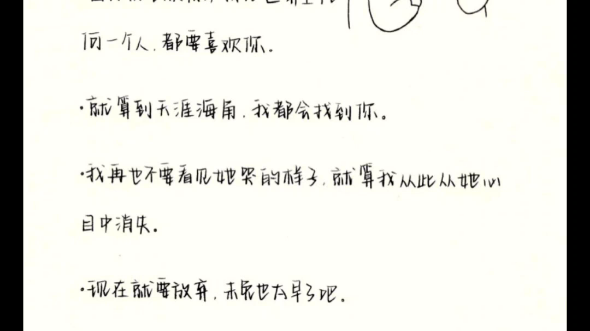 何一个人,都要喜欢你.
·就算到天涯海角,我都会找到你。
·我再也不要看见她哭的样子,就算我从此从她心
目中消失。
·现在就要放弃,未免也太早了吧.